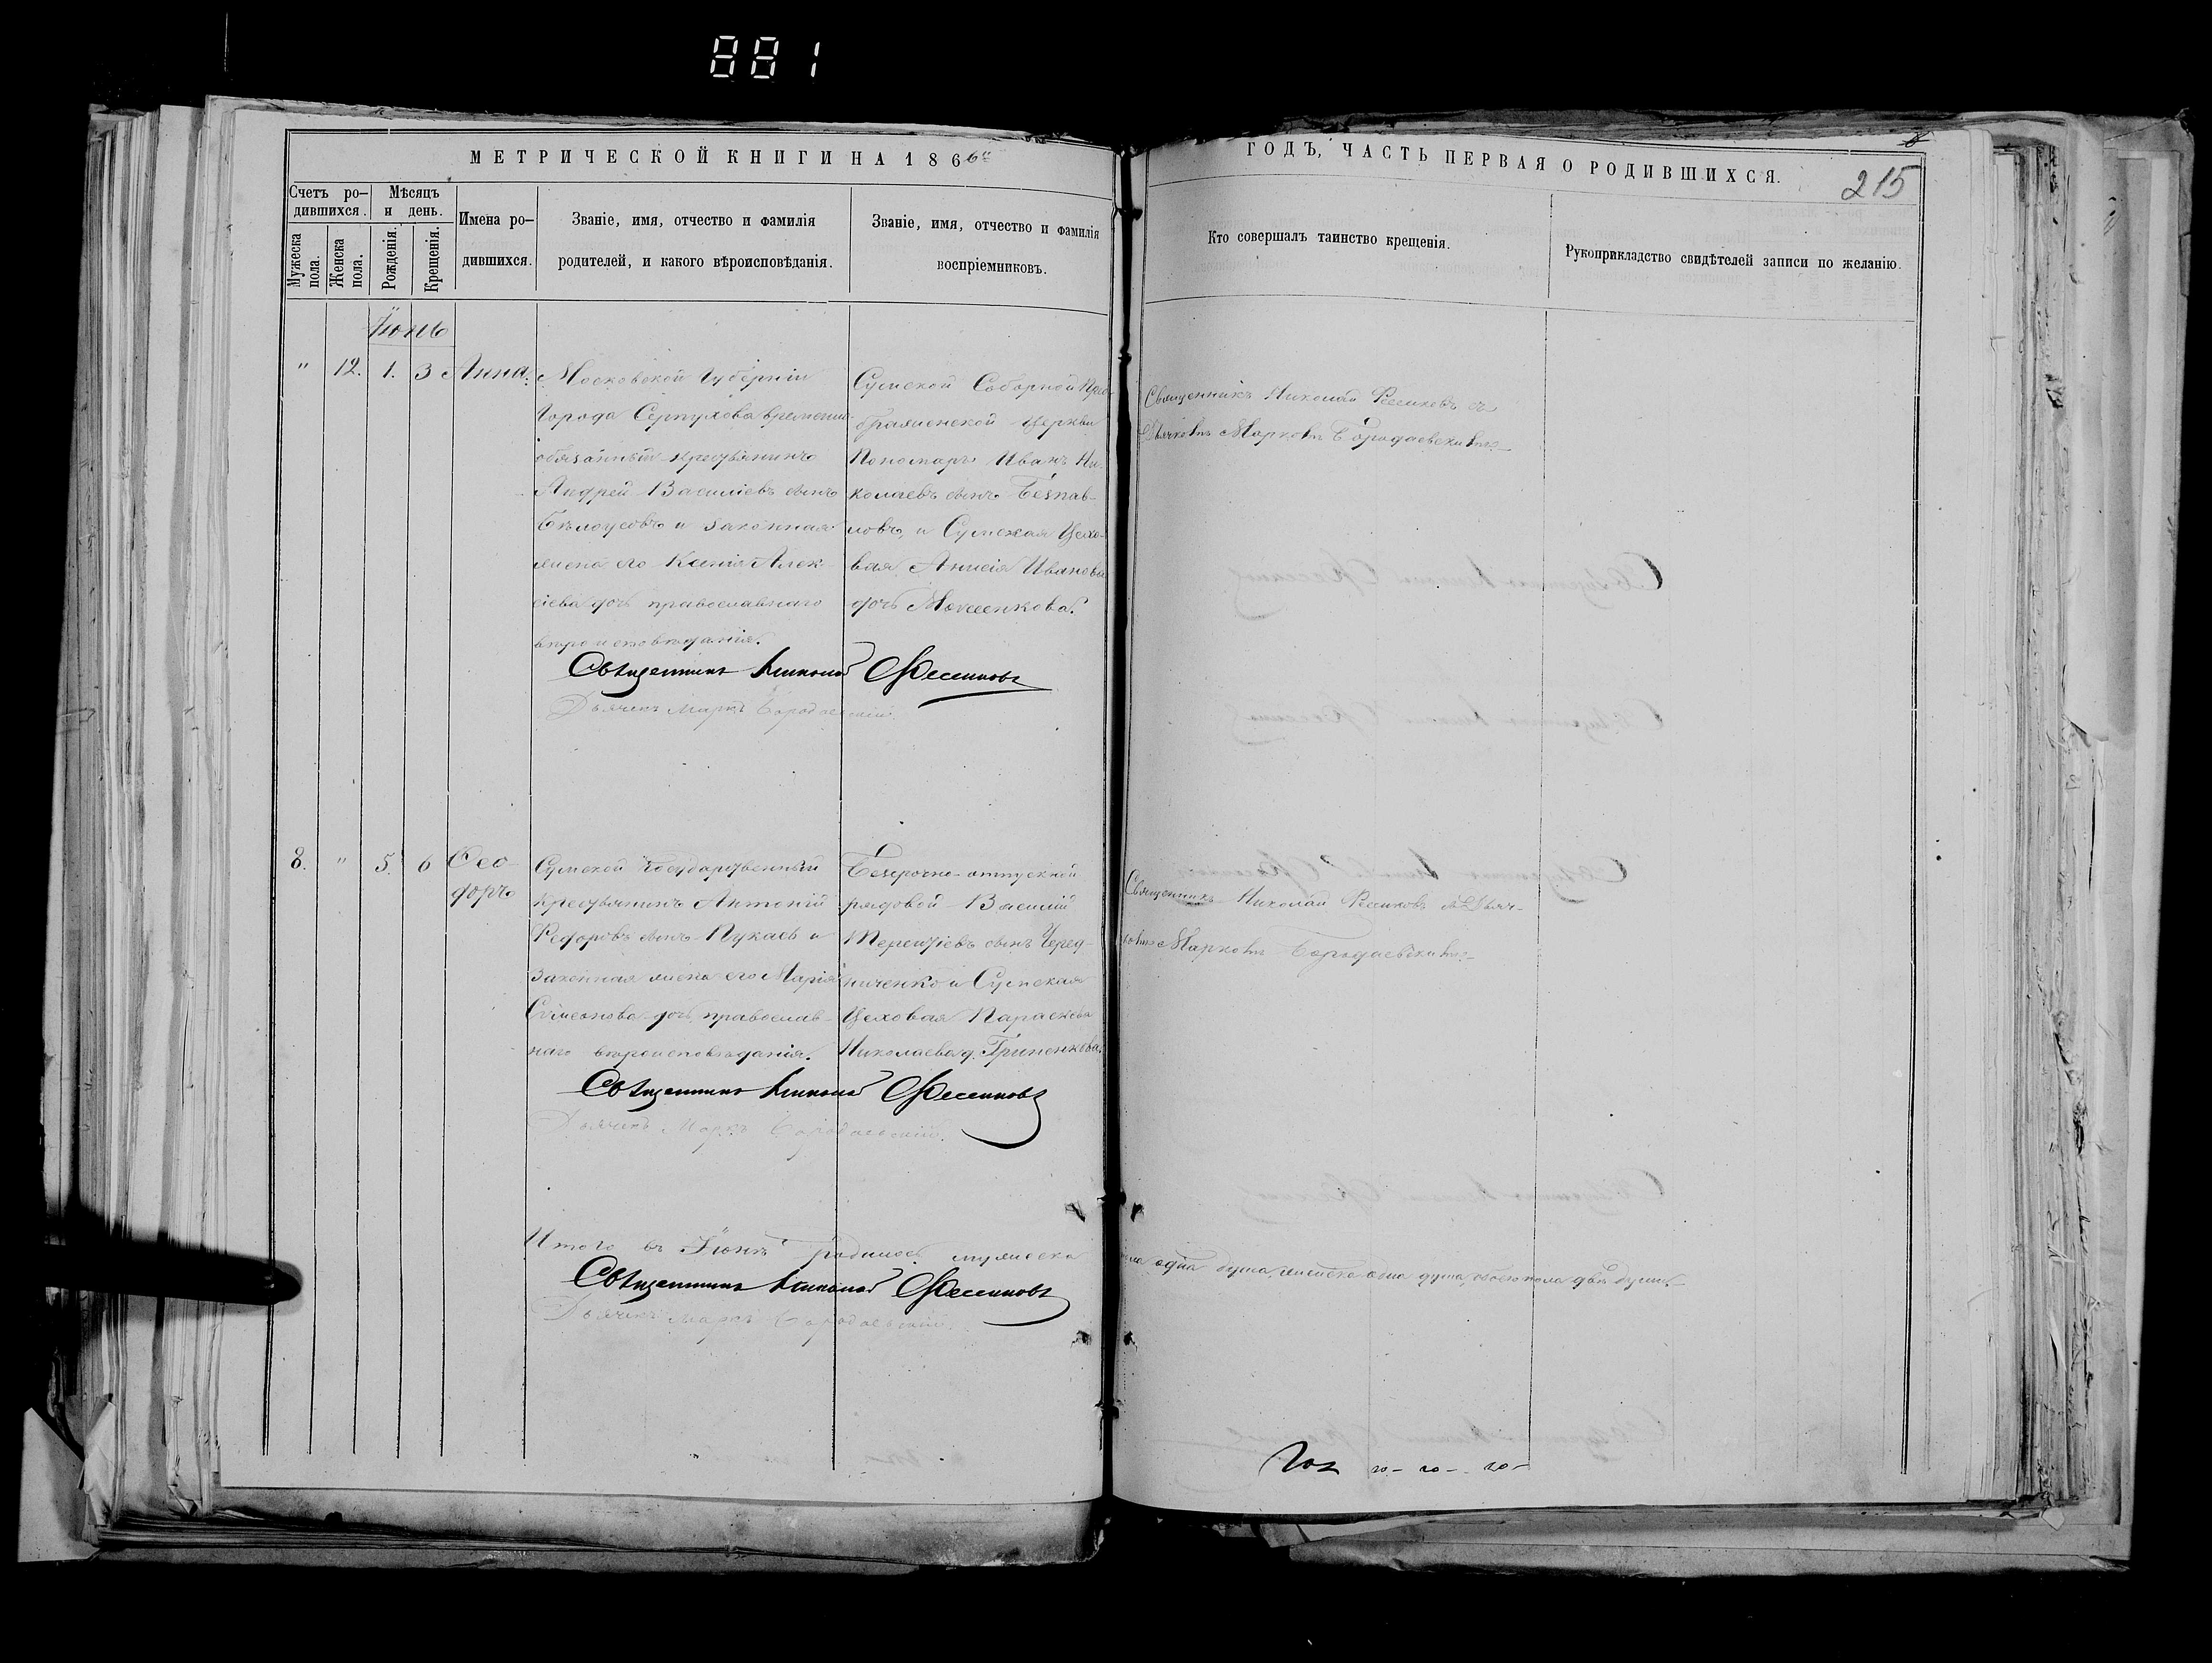 881
МЕТРИЧЕСКОЙ КНИГИ НА 1866й
ГОДЪ, ЧАСТЬ ПЕРВАЯ О РОДИВШИХСЯ.
215
Счетъ ро-
дившихся.
Мужеска пола.
Женска пола.
Мѣсяцъ
и день.
Рожденія.
Крещенія.
Имена ро-
дившихся.
Званіе, имя, отчество и фамилія
родителей, и какого вѣроисповѣданія.
Званіе, имя, отчество и фамилія
воспріемниковъ.
Кто совершалъ таинство крещенія.
Рукоприкладство свидѣтелей записи по желанію.
Іюнь
" 12. 1. 3 Анна.
Московской Губерніи
Города Серпухова временно-
обязанный крестьянинъ
Андрей Василіевъ сынъ
Бѣлоусовъ и законная
жена его Ксенія Алек-
сіева дочь православнаго
вѣроисповѣданія.
Сумской Соборной Прео-
браженской Церкви
Пономарь Иванъ Ни-
колаевъ сынъ
ловъ, и Сумская Цехо-
вая Анисія Иванова
дочь
Священникъ Николай Фесенковъ съ
Дьячкомъ Маркомъ Бородаевскимъ.
Священникъ Николай Фесенковъ
Дьячекъ Маркъ Бородаевскій.
8. " 5. 6 Ѳео-
доръ
Сумской Государственный
крестьянинъ Антоній
Федоровъ сынъ Пукаевъ и
законная жена его Марія
Симеонова дочь, православ-
наго вѣроисповѣданія.
Безсрочно-отпускной
рядовой Василій
Терентіевъ сынъ Черед-
ниченко и Сумская
Цеховая Параскева
Николаева д. Гриненкова.
Священникъ Николай Фесенковъ съ Дьяч-
комъ Маркомъ Бородаевскимъ.
Священникъ Николай Фесенковъ
Дьячекъ Маркъ Бородаевскій.
Итого въ Іюнѣ родилось мужеска
пола одна душа, женска одна душа, обоего пола двѣ души.
Священникъ Николай Фесенковъ
Дьячекъ Маркъ Бородаевскій.